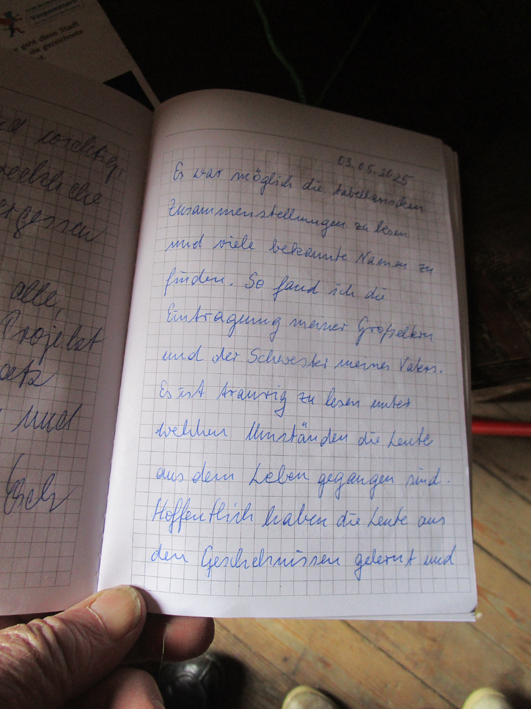 dem Stadt
die gezeichnete
und
rechtliche
ergessen
alle,
Projekt
und
03.05.2025
Es war möglich die tabellarischen
Zusammenstellungen zu lesen
und viele bekannte Namen zu
finden. So fand ich die
Eintragung meiner Großeltern
und der Schwester meines Vaters.
Es ist traurig zu lesen unter
welchen Umständen die Leute
aus dem Leben gegangen sind.
Hoffentlich haben die Leute aus
den Geschehnissen gelernt und